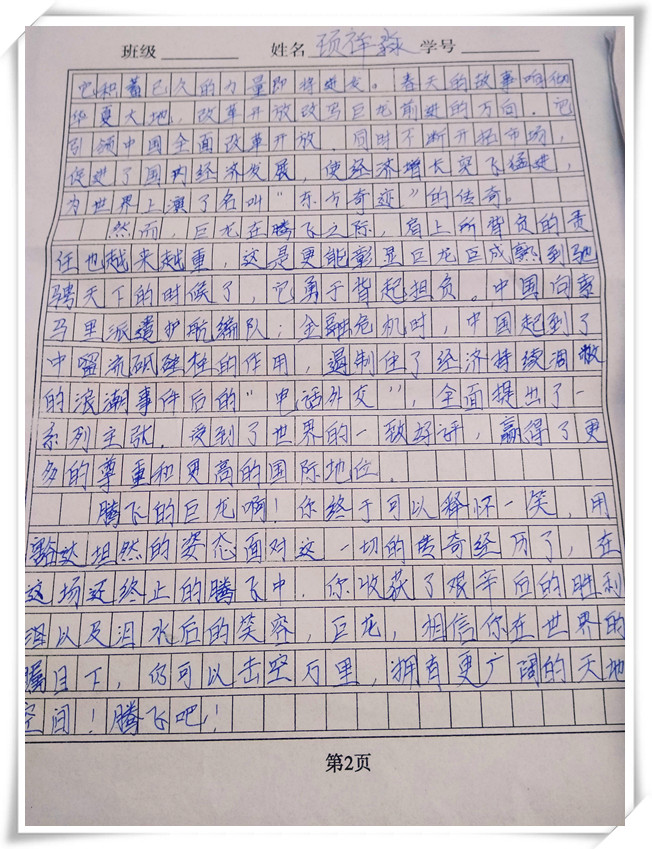 班级 姓名 项祥淼 学号
它积蓄已久的力量即将迸发。春天的故事响彻
华夏大地,改革开放改写巨龙前进的方向.它
引领中国全面改革开放.同时不断开拓市场,
促进了国内经济发展,使经济增长突飞猛进,
为世界上演了名叫“东方奇迹”的传奇。
然而,巨龙在腾飞之际,肩上所背负的责
任也越来越重,这是更能彰显巨龙已成熟到驰
骋天下的时候了,它勇于背起担负。中国向索
马里派遣护航编队;金融危机时,中国起到了
中流砥柱的作用,遏制住了经济持续凋敝
的浪潮事件后的“电话外交”,全面提出了一
系列主张.受到了世界的一致好评,赢得了更
多的尊重和更高的国际地位.
腾飞的巨龙啊!你终于可以释怀一笑,用
豁达坦然的姿态面对这一切的传奇经历了,在
这场还终止的腾飞中.你收获了艰辛后的胜利
泪以及泪水后的笑容,巨龙,相信你在世界的
瞩目下,仍可以击空万里,拥有更广阔的天地
空间!腾飞吧!
第2页